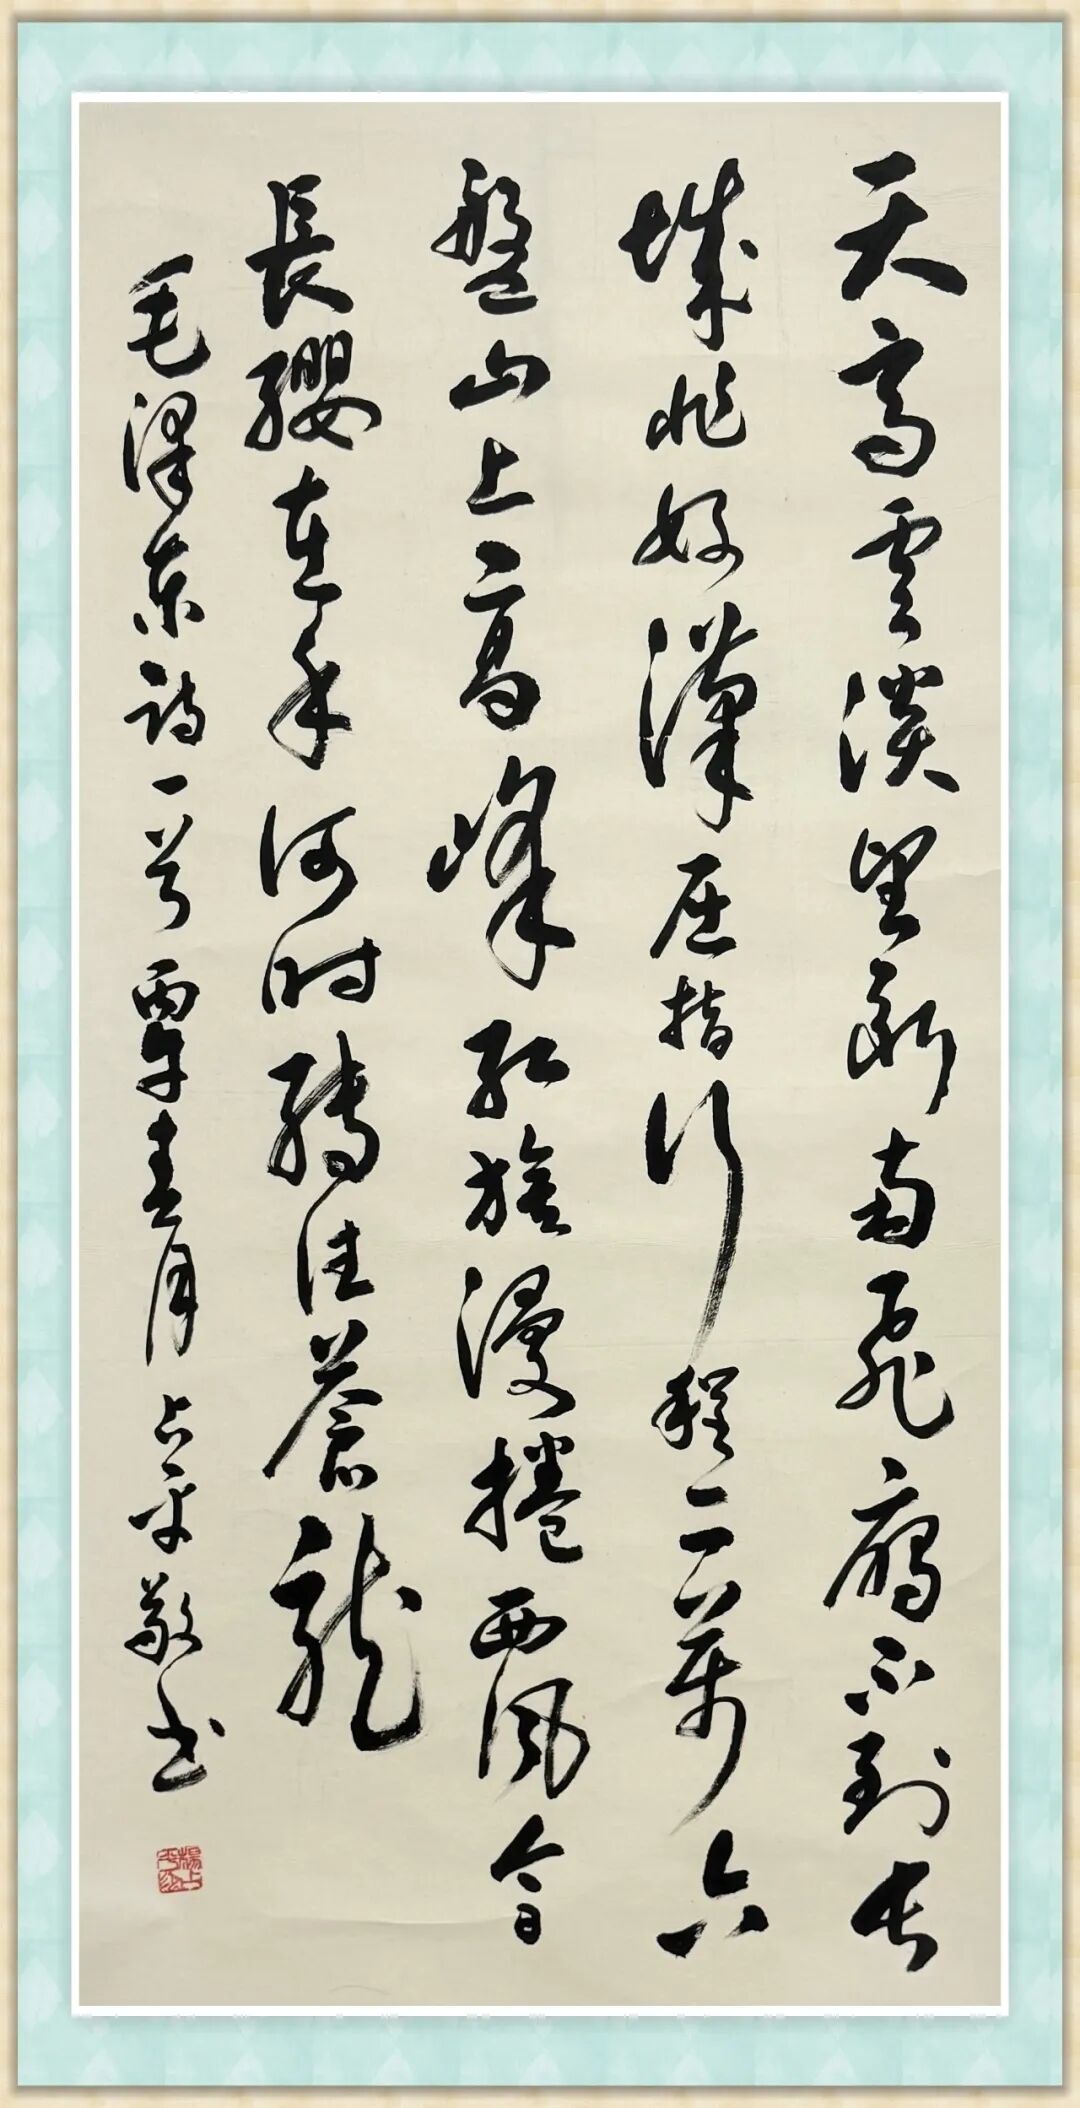 天高雲淡望斷南飛雁不到長
城非好漢屈指行程二萬六
盤山上高峰紅旗漫捲西風今日
長纓在手何时縛住蒼龍
毛澤東詩一首丙午春月占平敬書
楊占平印